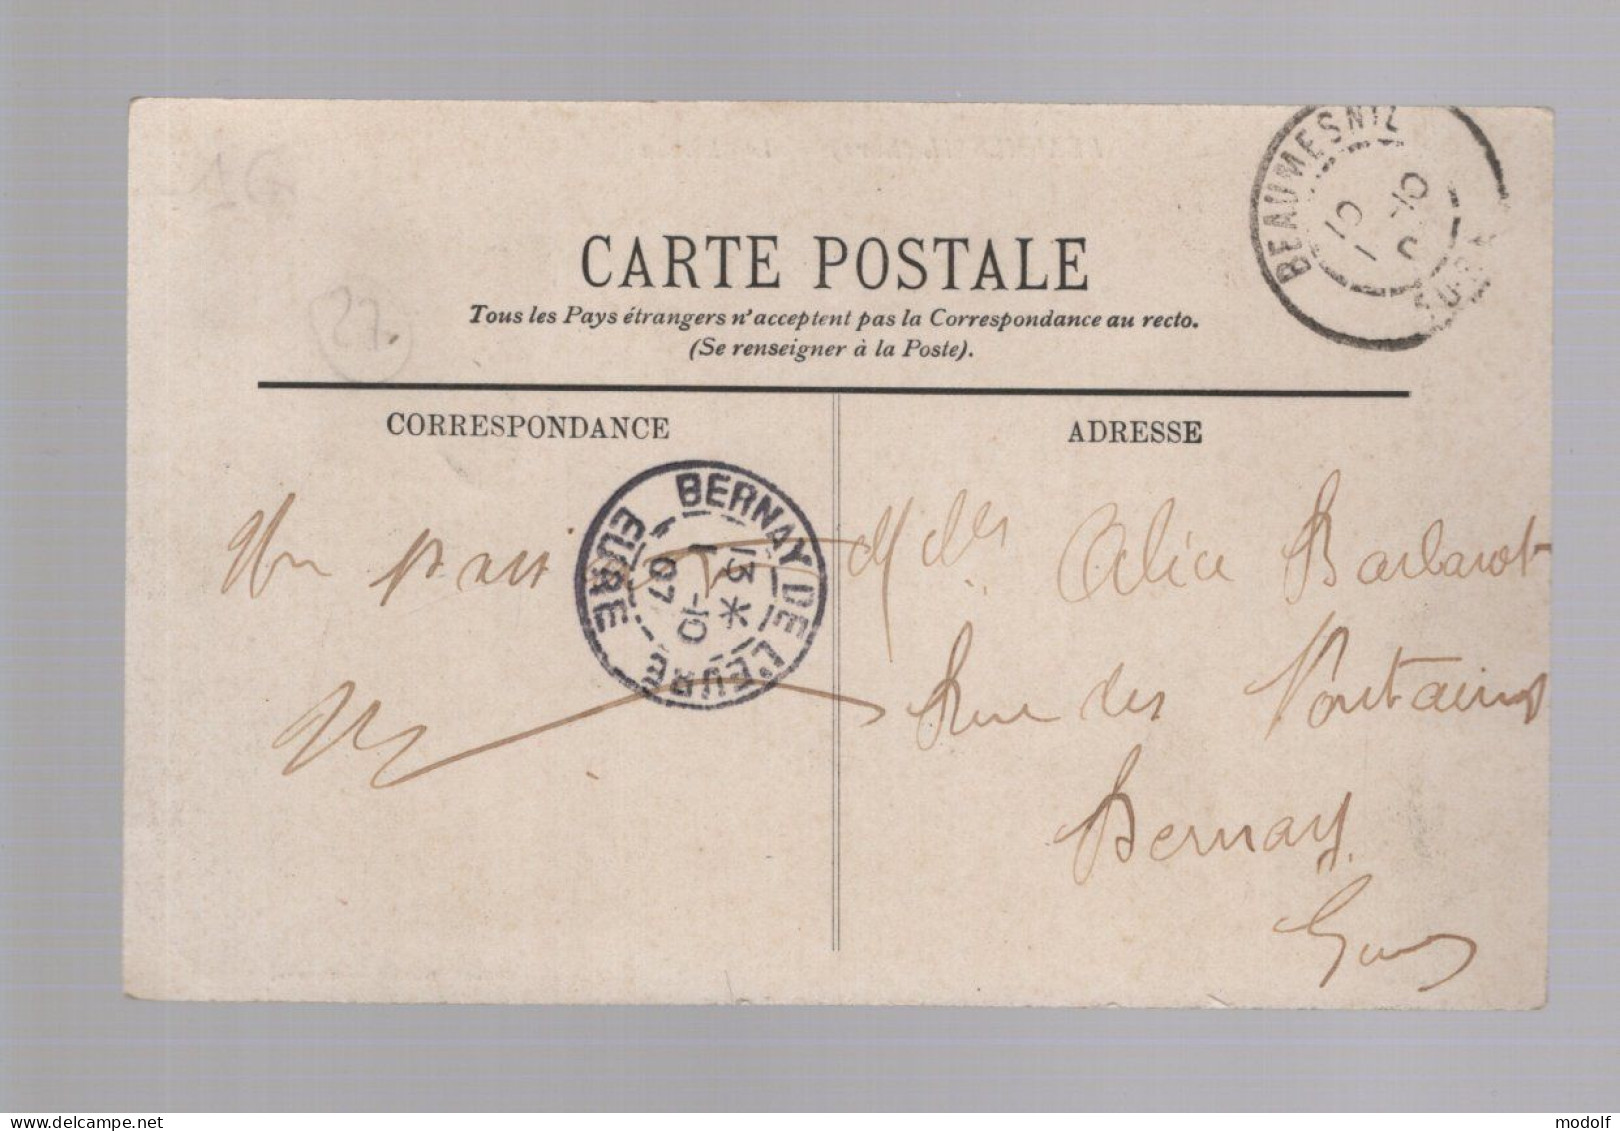 16
CARTE POSTALE
Tous les Pays étrangers n'acceptent pas la Correspondance au recto.
(Se renseigner à la Poste).
27.
BEAUMESNIL
EURE
CORRESPONDANCE
ADRESSE
BERNAY DE L'EURE
EURE
13 *
1 -10
07
Un
Alice Barbarot
Rue des Fontaines
Bernay
Eure
delcampe.net
modolf